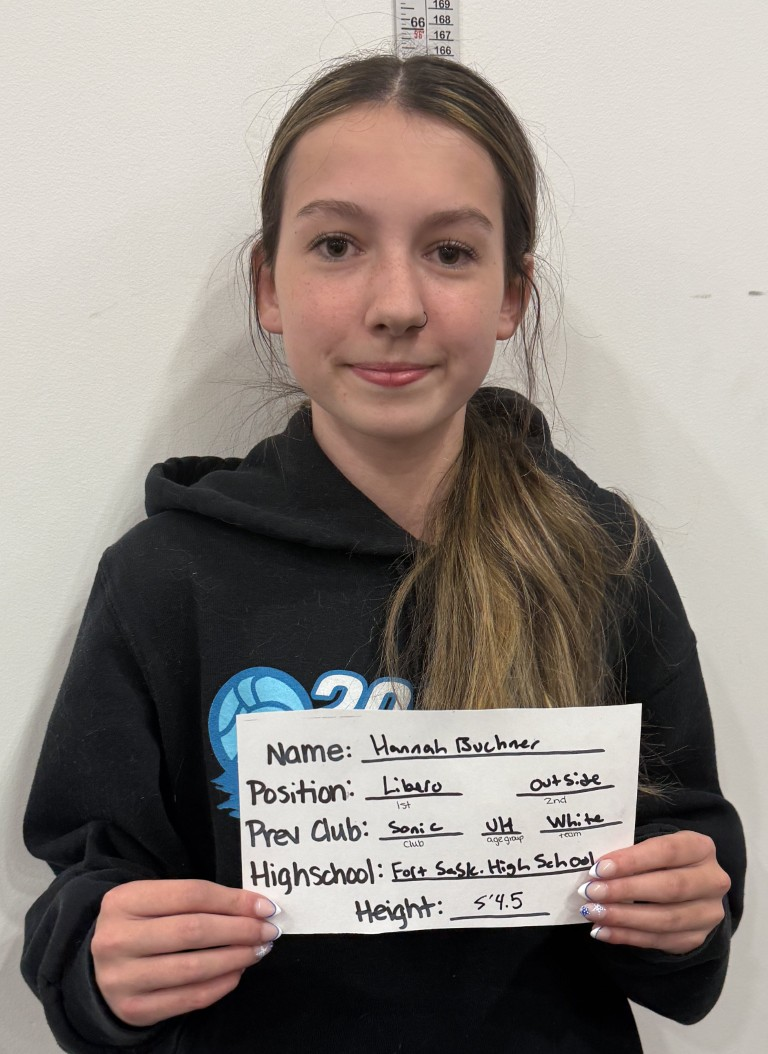 169
66 168
167
166
20
Name: Hannah Buchner
Position: Libero Outside
1st 2nd
Prev Club: Sonic UH White
club age group team
Highschool: Fort Sask. High School
Height: 5'4.5